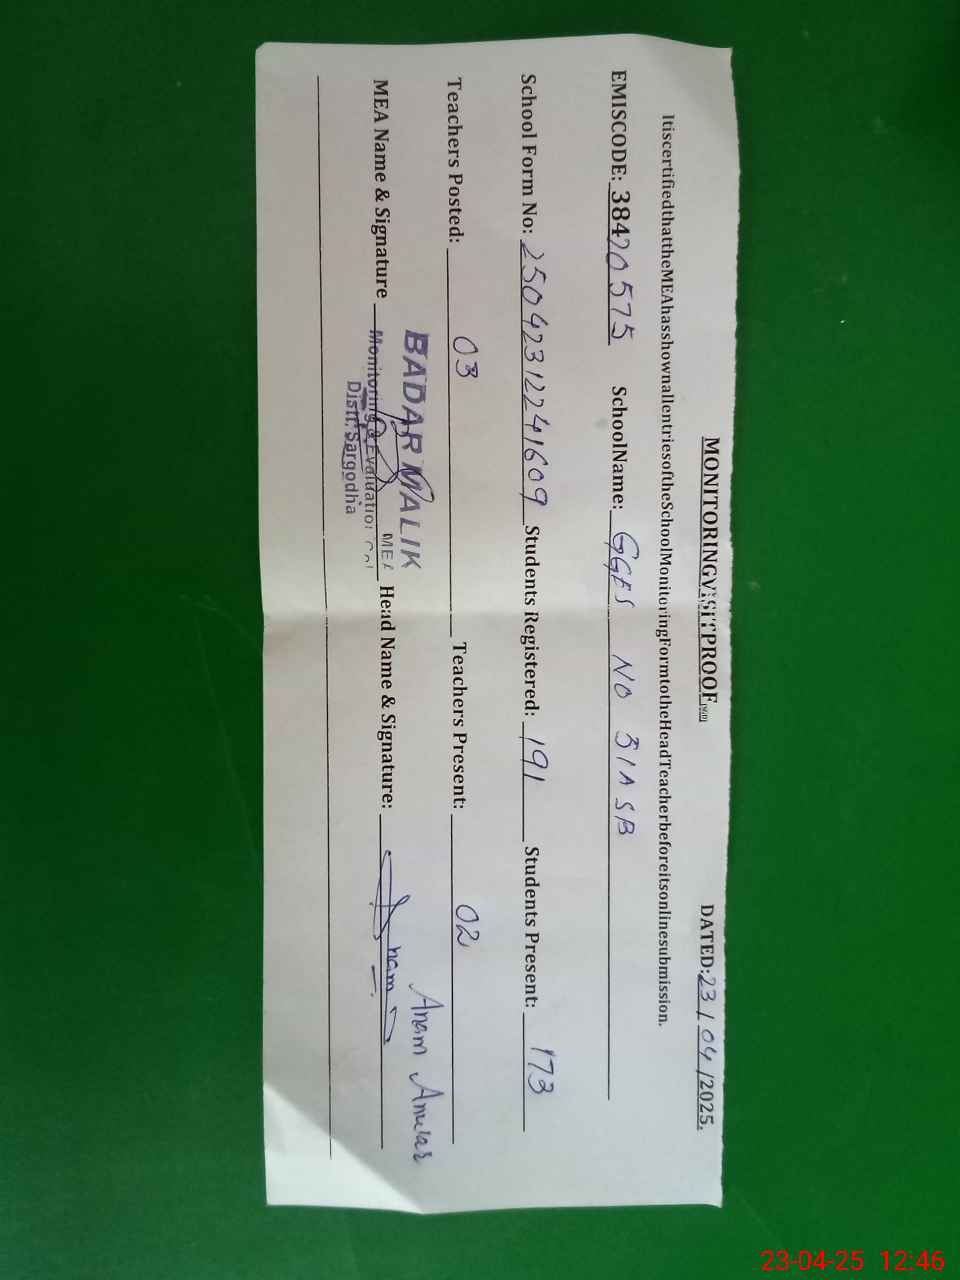 MONITORINGVISITPROOF DATED:23/04/2025.
ItiscertifiedthattheMEAhasshownallentriesoftheSchoolMonitoringFormtotheHeadTeacherbeforeitsonlinesubmission.
EMISCODE: 38420575 SchoolName: GGES NO 31A SB
School Form No: 250423122241609 Students Registered: 191 Students Present: 173
Teachers Posted: 03 Teachers Present: 02
BADAR MALIK Anam Anwar
MEA Name & Signature MEA Head Name & Signature: Anam
Monitoring & Evaluation
Distt. Sargodha
23-04-25 12:46